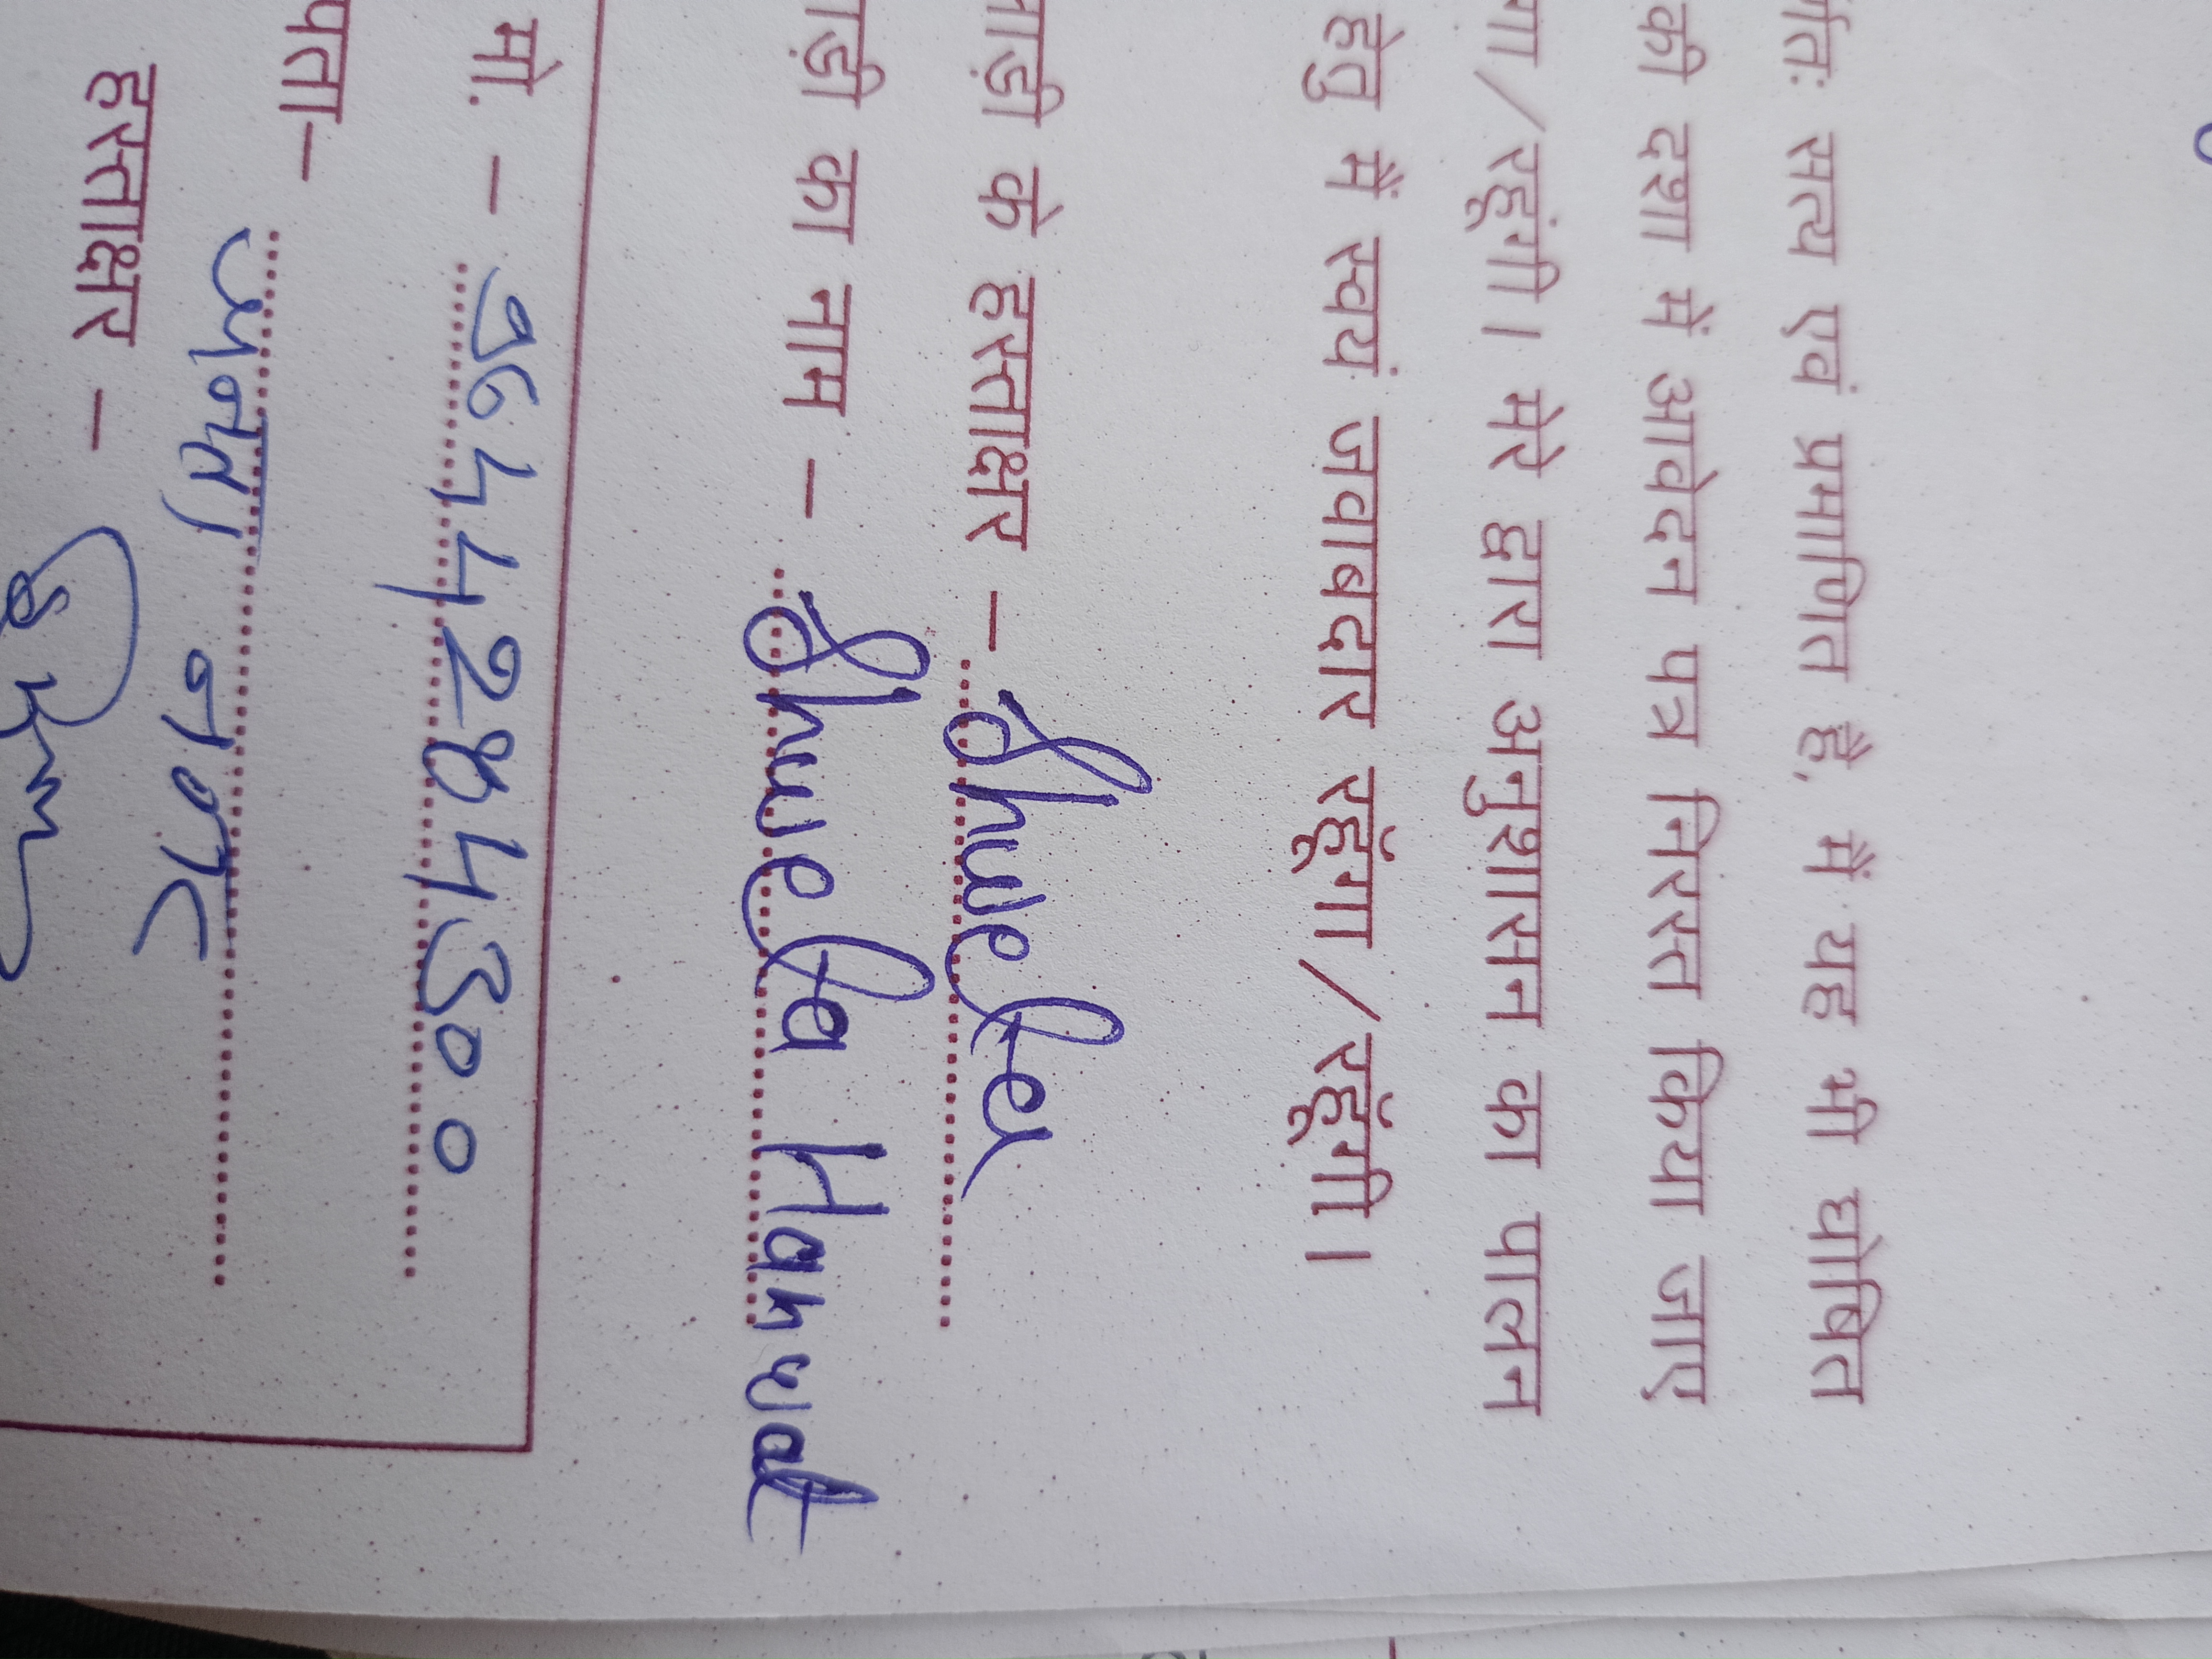 र्णतः सत्य एवं प्रमाणित है, मैं यह भी घोषित
की दशा में आवेदन पत्र निरस्त किया जाए
गा/रहूंगी। मेरे द्वारा अनुशासन का पालन
हेतु मैं स्वयं जवाबदार रहूँगा/रहूँगी।
गाड़ी के हस्ताक्षर - Shweta
ाड़ी का नाम - Shweta Hanwat
मो. -
पता- जनता नगर
हस्ताक्षर -